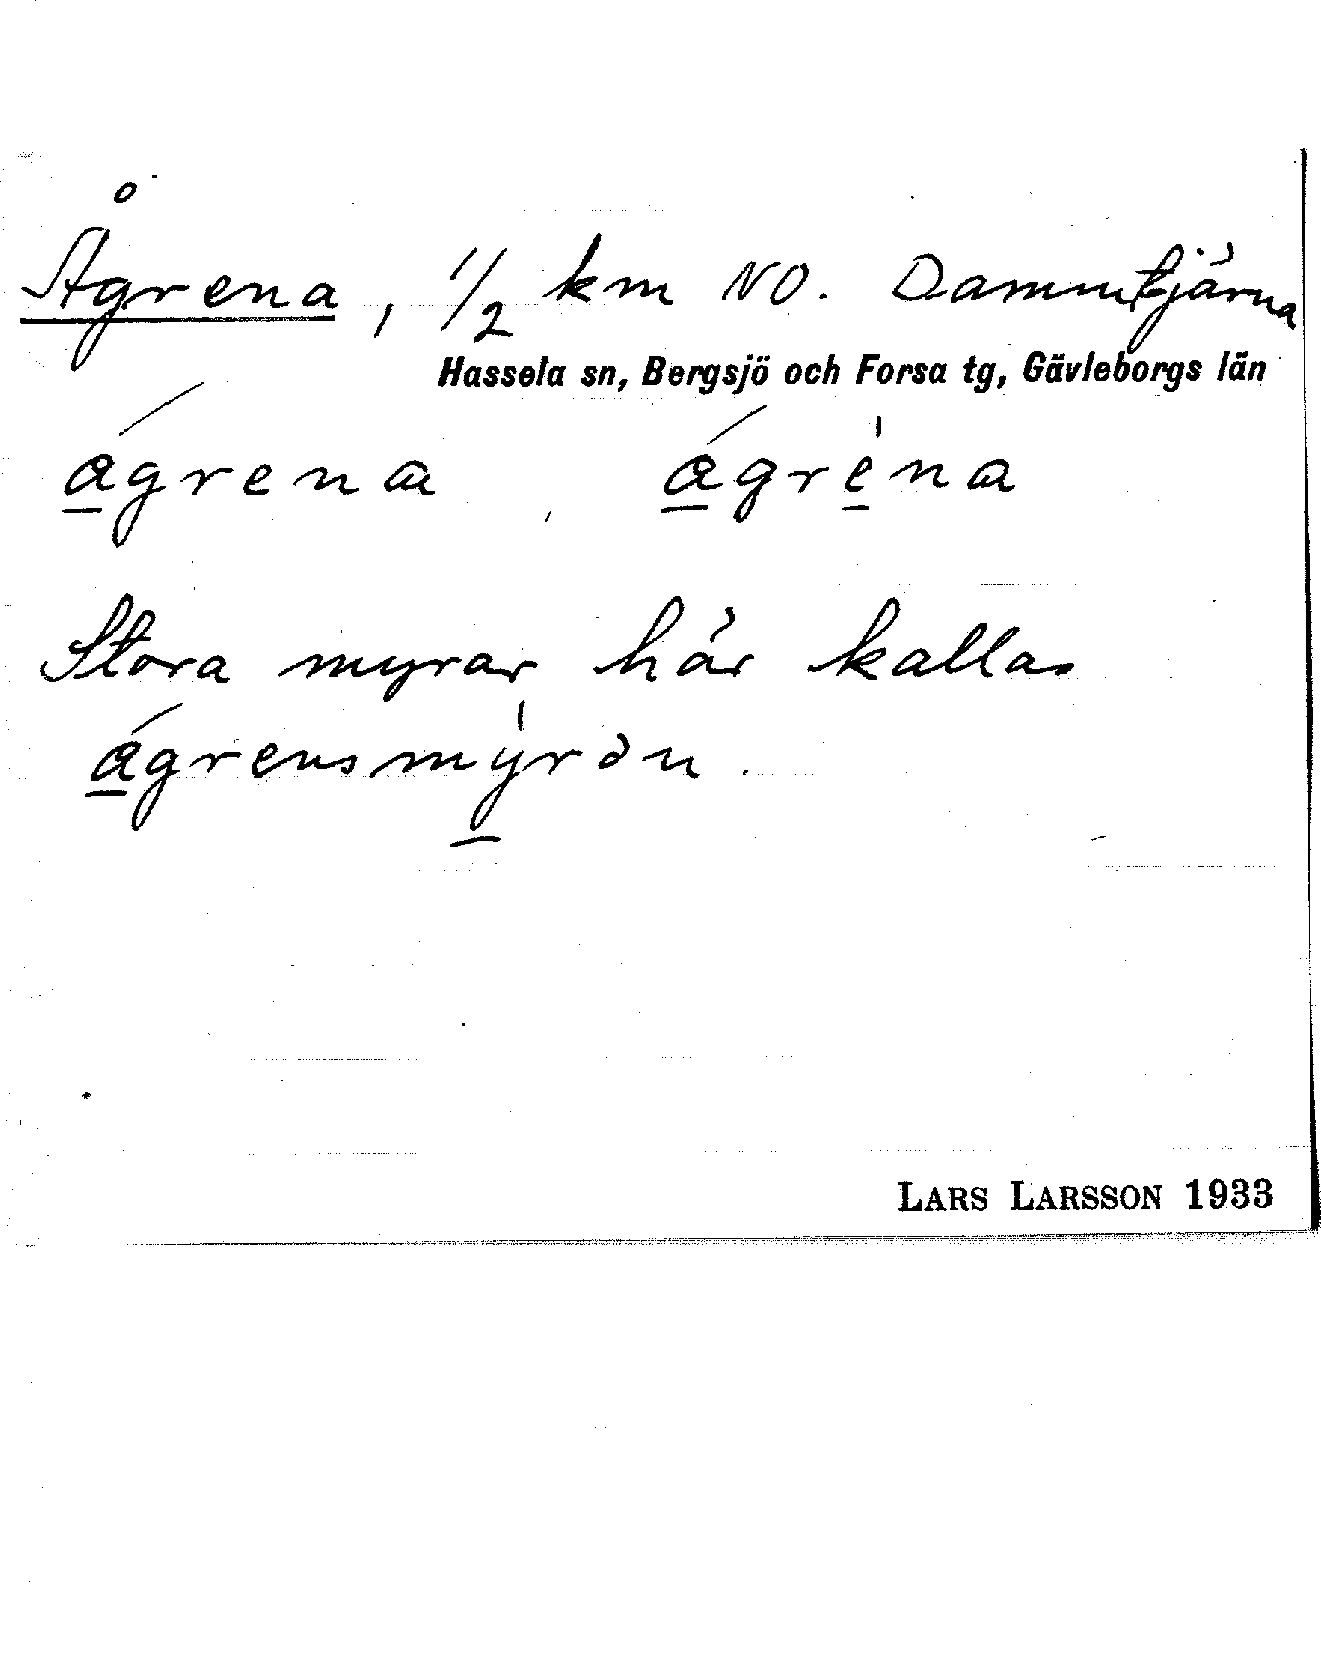 Ågrena, 1/2 km NO. Dammtjärna
Hassela sn, Bergsjö och Forsa tg, Gävleborgs län
á̲grena, á̲gre̲̍na
Stora myrar här kallas
á̲grensmy̲̍rən.
LARS LARSSON 1933